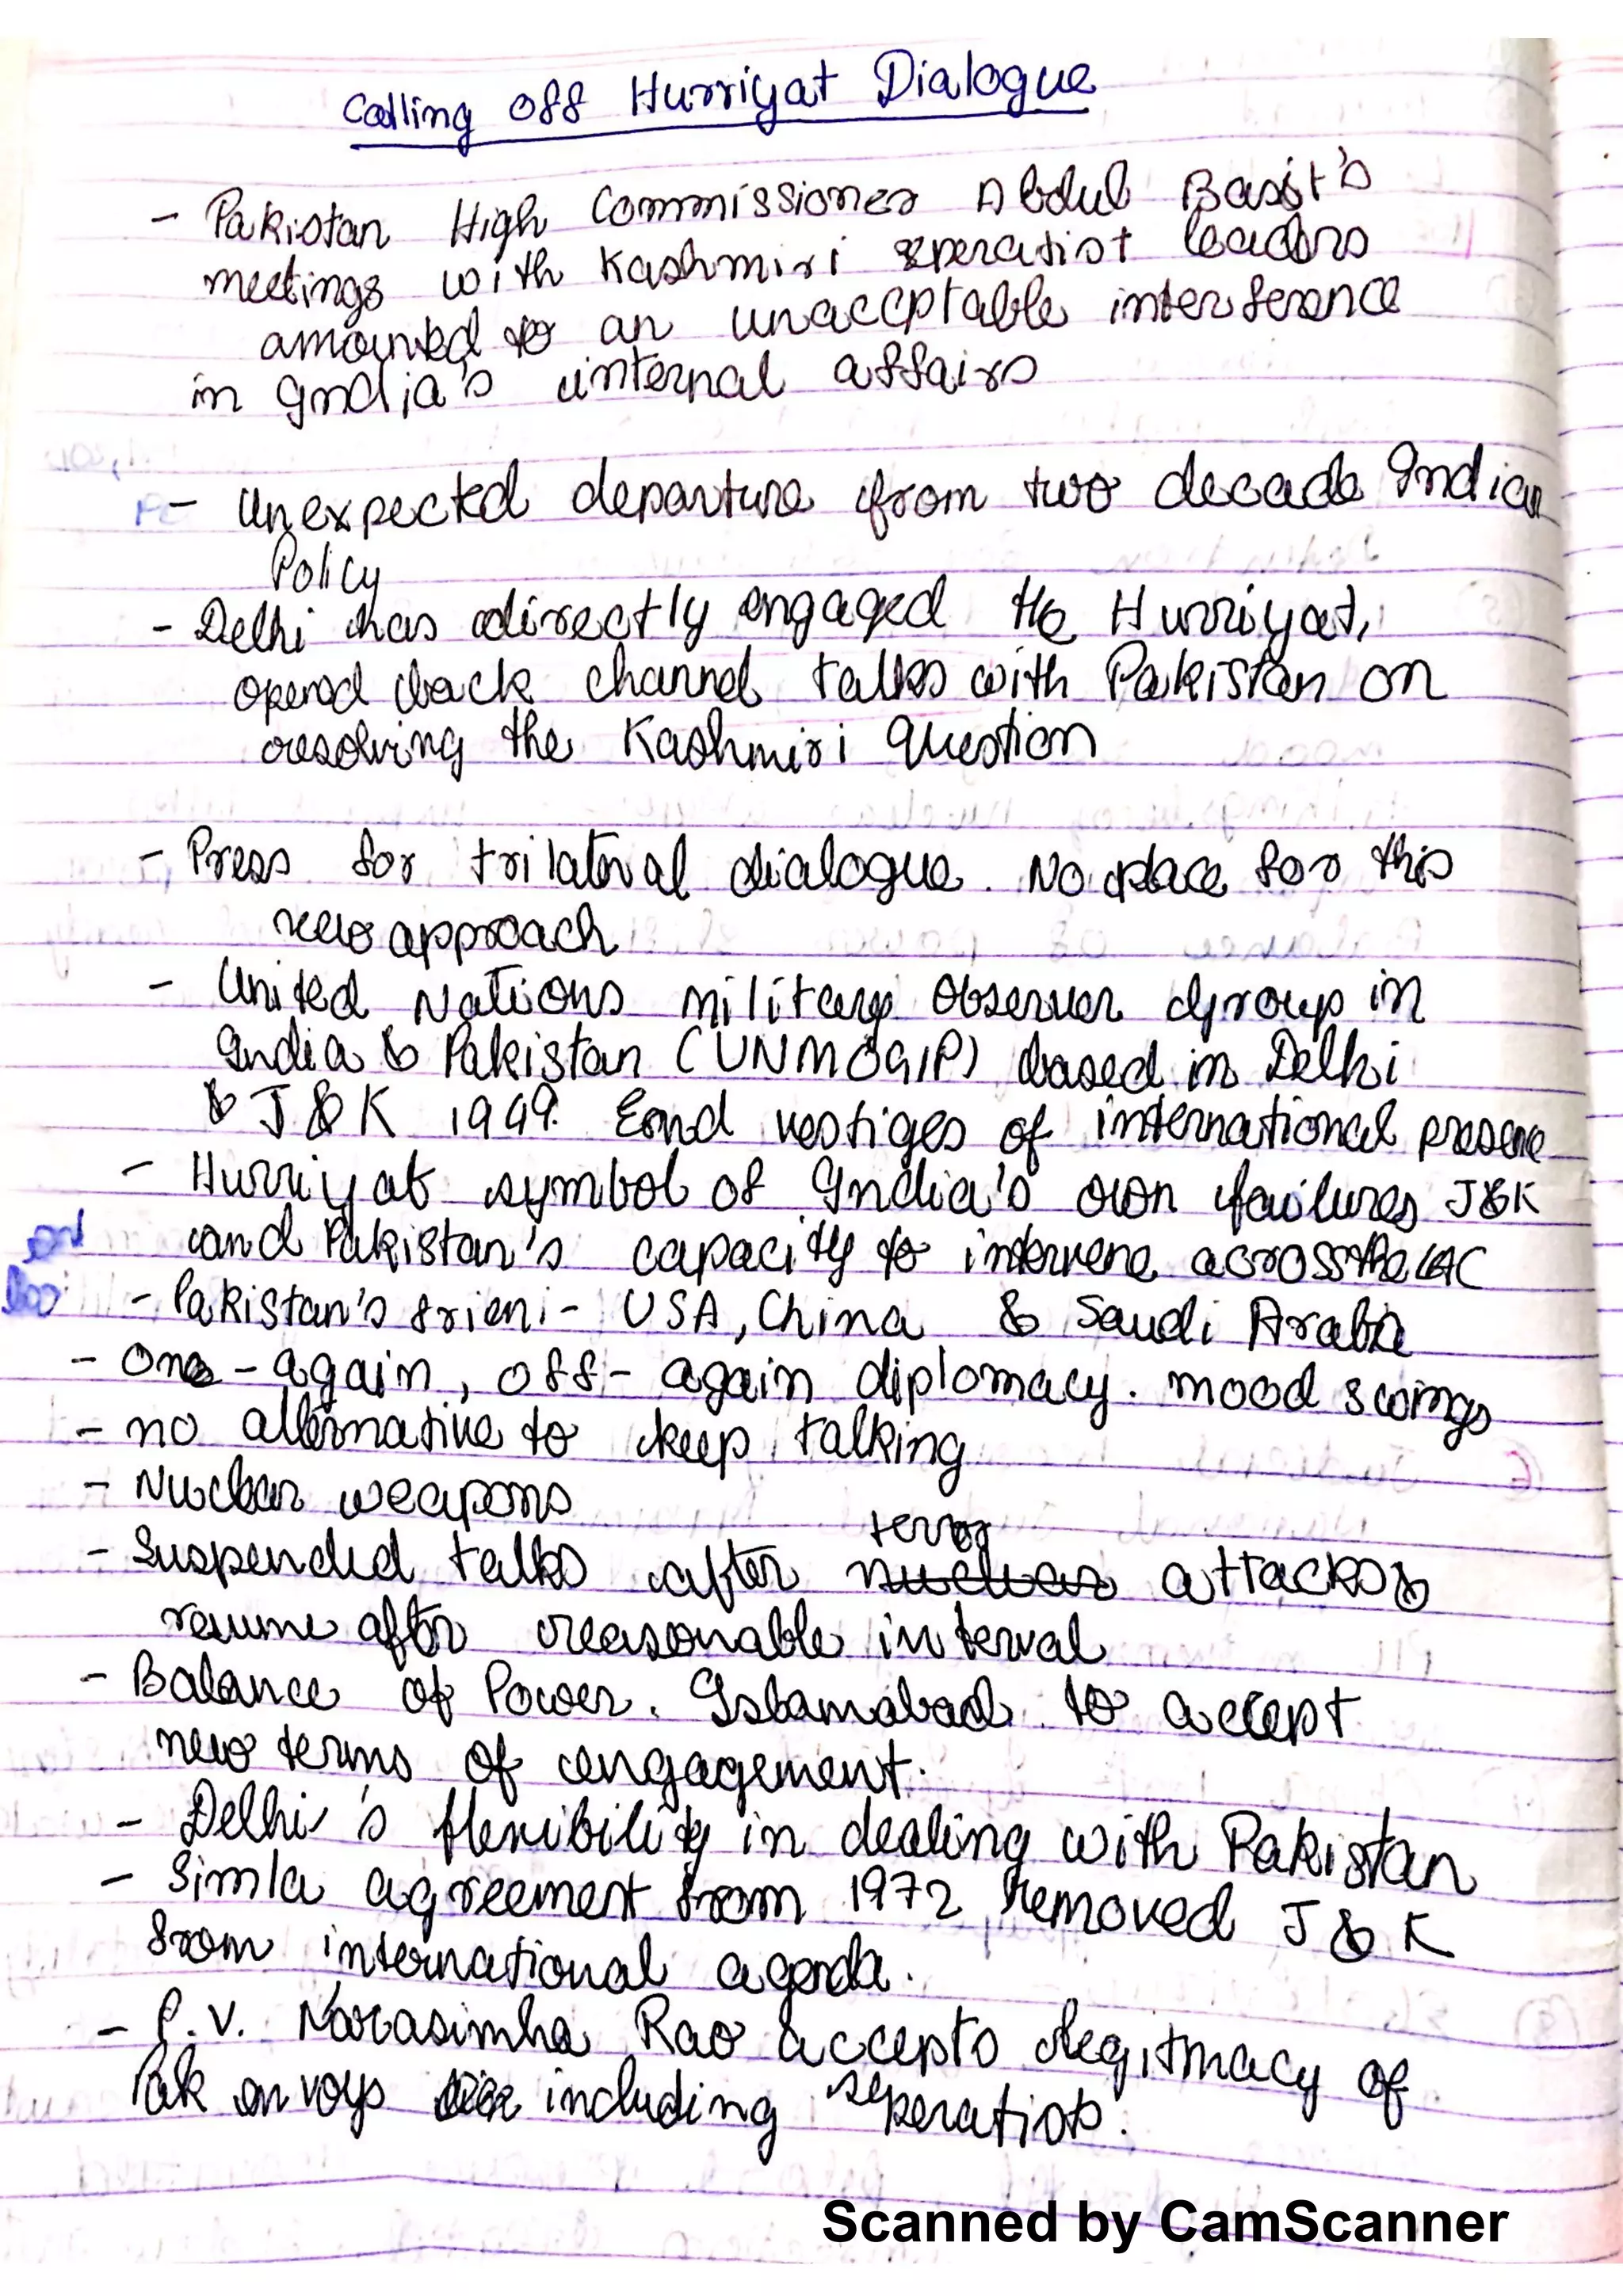 Calling off Hurriyat Dialogue
- Pakistan High Commissioner Abdul Basit's
meetings with Kashmiri seperatist leaders
amounted to an unaccptable interference
in India's internal affairs
- Unexpected departure from two decade Indian
Policy
- Delhi has directly engaged the Hurriyat,
opened back channel talks with Pakistan on
resolving the Kashmiri Question
- Press for trilateral dialogue. No place for this
new approach
- United Nations Military Observer Group in
India & Pakistan (UNMOGIP) based in Delhi
& J&K 1949. End vestiges of international presence
- Hurriyat symbol of India's own failures J&K
and Pakistan's capacity to intervene across the LAC
- Pakistan's frien:- USA, China & Saudi Arabia
- One-again, off-again diplomacy. mood swings
- no alternative to keep talking
- Nuclear weapons
terror
- Suspended talks after nuclear attacks &
resume after reasonable interval
- Balance of Power. Islamabad to accept
new terms of engagement.
- Delhi's flexibility in dealing with Pakistan
- Simla agreement from 1972 removed J&K
from international agenda.
- P.V. Narasimha Rao accepts legitimacy of
Pak envoys including seperatists.
Scanned by CamScanner